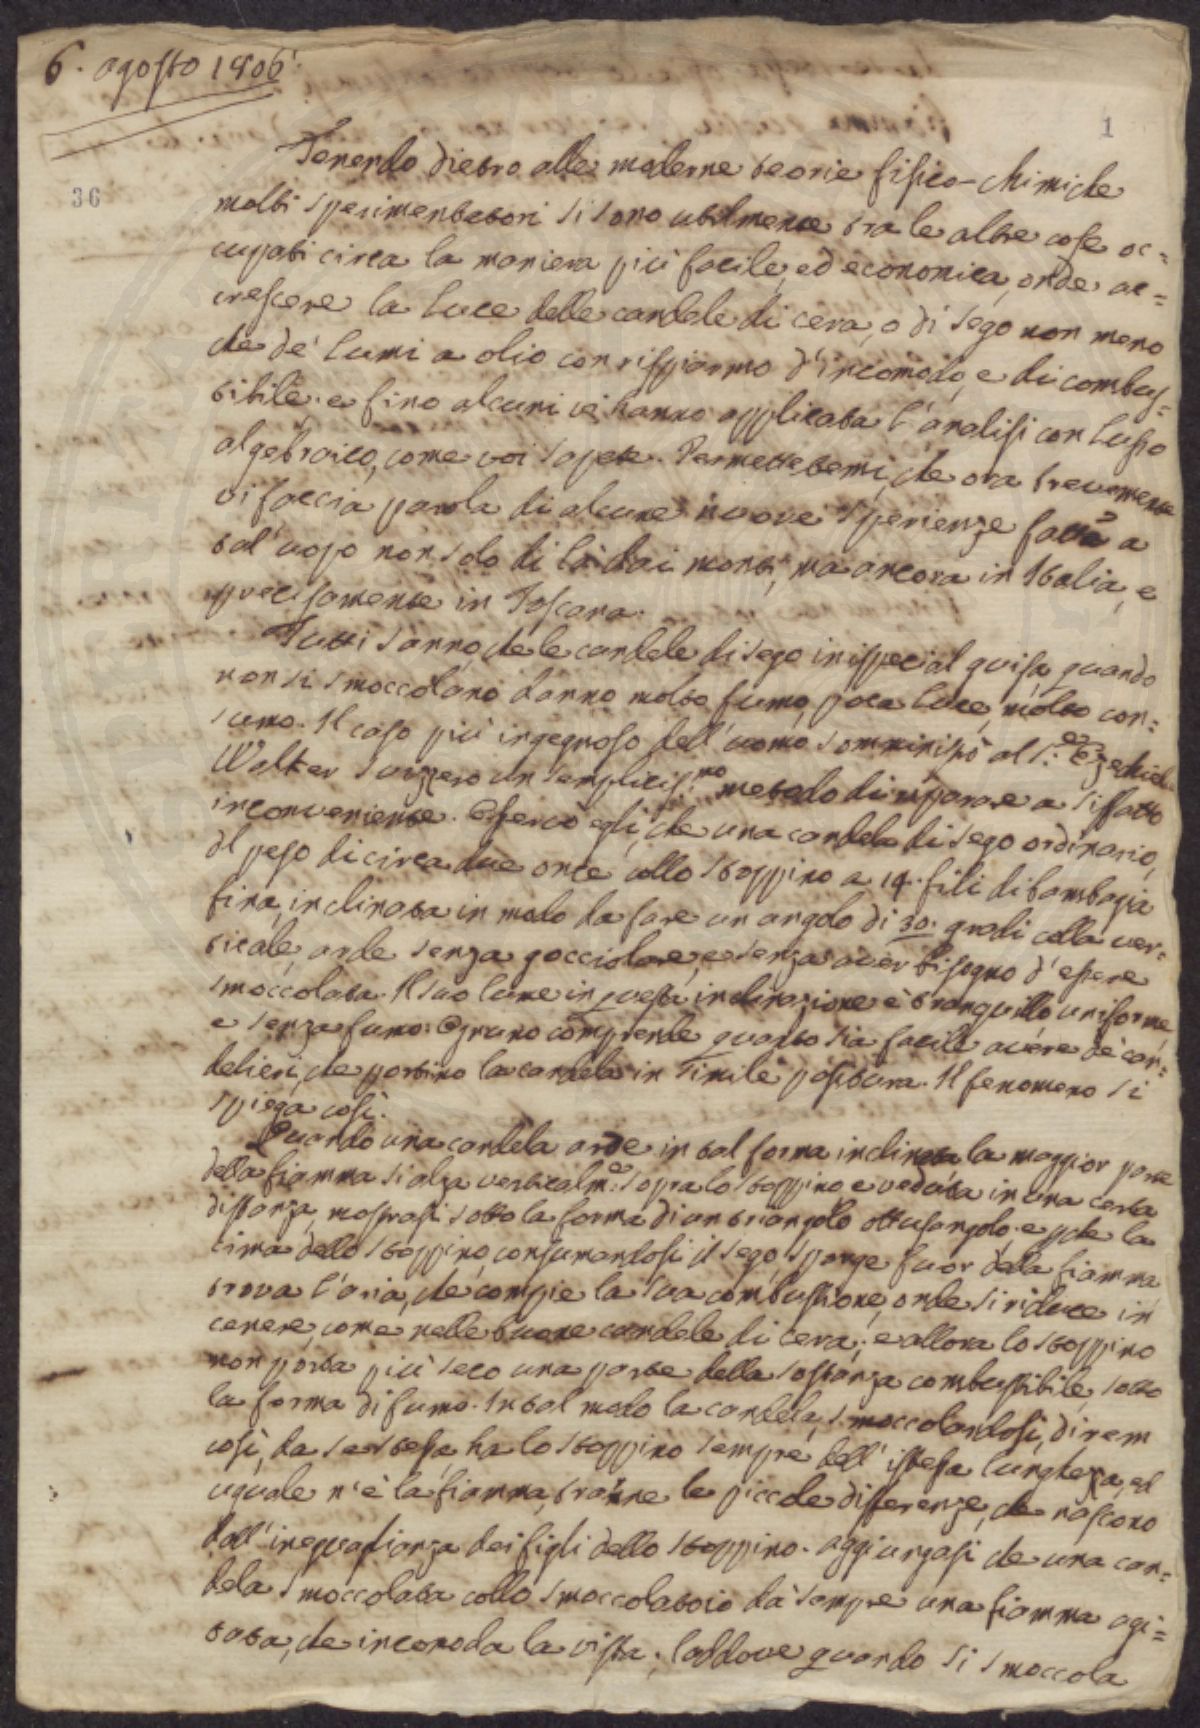 6. agosto 1806.
1
36
Tenendo dietro alle moderne teorie fisico-chimiche
molti sperimentatori si sono utilmente tra le altre cose oc=
cupati circa la maniera più facile, ed economica, onde ac=
crescere la luce delle candele di cera, o di sego non meno
che de' lumi a olio con risparmio d'incomodo, e di combus=
tibile; e fino alcuni vi hanno applicata l'analisi con lusso
algebraico, come voi sapete. Permettetemi, che ora brevemente
vi faccia parola di alcune nuove sperienze fatte a
tal uopo non solo di là dai monti, ma ancora in Italia, e
precisamente in Toscana.
Tutti sanno, che le candele di sego in ispecial guisa quando
non si smoccolano danno molto fumo, poca luce, molto con=
sumo. Il caso più ingegnoso dell'uomo somministrò al S.e Ezechiele
Walker Svizzero un semplicis.mo metodo di riparare a siffatto
inconveniente. Osservò egli, che una candela di sego ordinario,
del peso di circa due once collo stoppino a 14. fili di bambagia
fina, inclinata in modo da fare un angolo di 30. gradi colla ver=
ticale, arde senza gocciolare, e senza aver bisogno d'essere
smoccolata. Il suo lume in questa inclinazione è tranquillo uniforme,
e senza fumo. Ognuno comprende quanto sia facile avere de' can=
delieri, che portino la candela in simile positura. Il fenomeno si
spiega così.
Quando una candela arde in tal forma inclinata la maggior parte
della fiamma si alza verticalm.e sopra lo stoppino e veduta in una certa
distanza, mostrasi sotto la forma di un triangolo ottusangolo; e pche la
cima dello stoppino, consumandosi il sego, sporge fuor della fiamma
trova l'aria, che compie la sua combustione, onde si riduce in
cenere, come nelle buone candele di cera; e allora lo stoppino
non porta più seco una parte della sostanza combustibile, sotto
la forma di fumo. In tal modo la candela, smoccolandosi, direm
così, da se stessa, ha lo stoppino sempre dell'istessa lunghezza, ed
uguale n'è la fiamma, tranne le piccole differenze, che nascono
dall'ineguaglianza dei figli dello stoppino. aggiungasi che una can=
dela smoccolata collo smoccolatoio dà sempre una fiamma agi=
tata, che incomoda la vista; laddove quando si smoccola